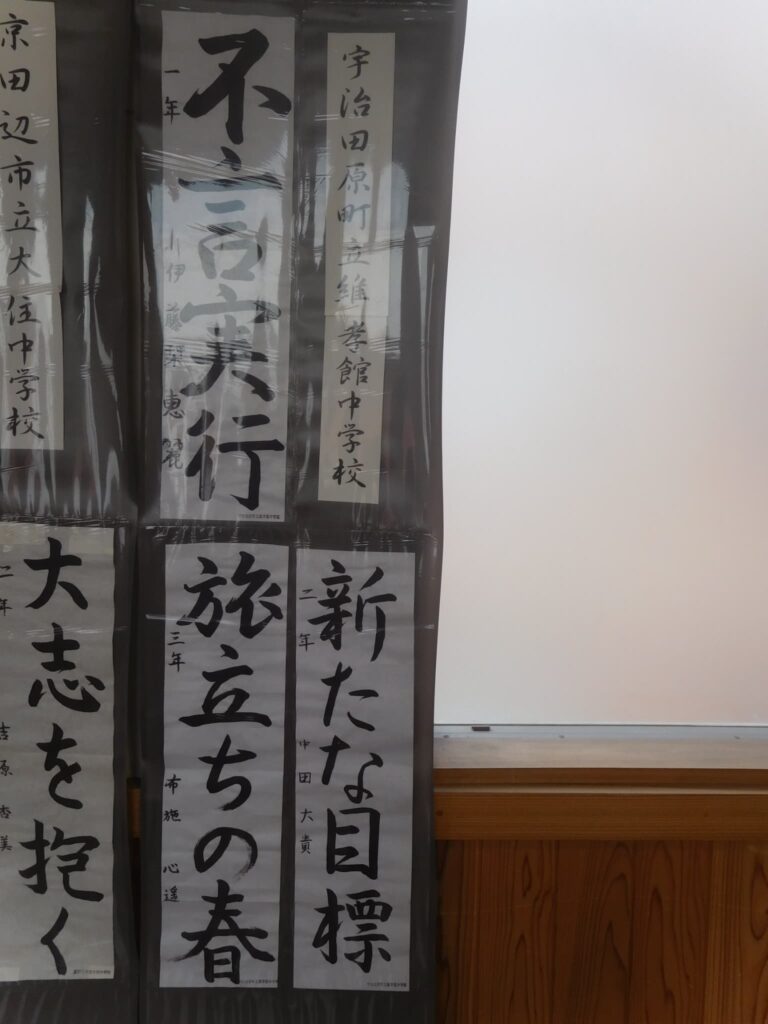 宇治田原町立維孝館中学校
不言実行
一年
伊藤
新たな目標
二年 中田大貴
旅立ちの春
三年 布施心遥
京田辺市立大住中学校
大志を抱く
二年 吉原杏美